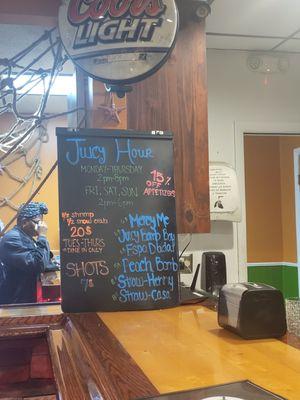 Coors
LIGHT
Juicy Hour
MONDAY-THURSDAY
2pm-5pm
FRI, SAT, SUN
2pm-6pm
15%
OFF
APPETIZERS
1/2 shrimp
1/2 snow crab
20$
TUES-THURS
DINE IN ONLY
SHOTS
7$
Mercy Me
Juicy Bomb Bay
Espo Daddy
Peach Bomb
Show-Henny
Show-Case